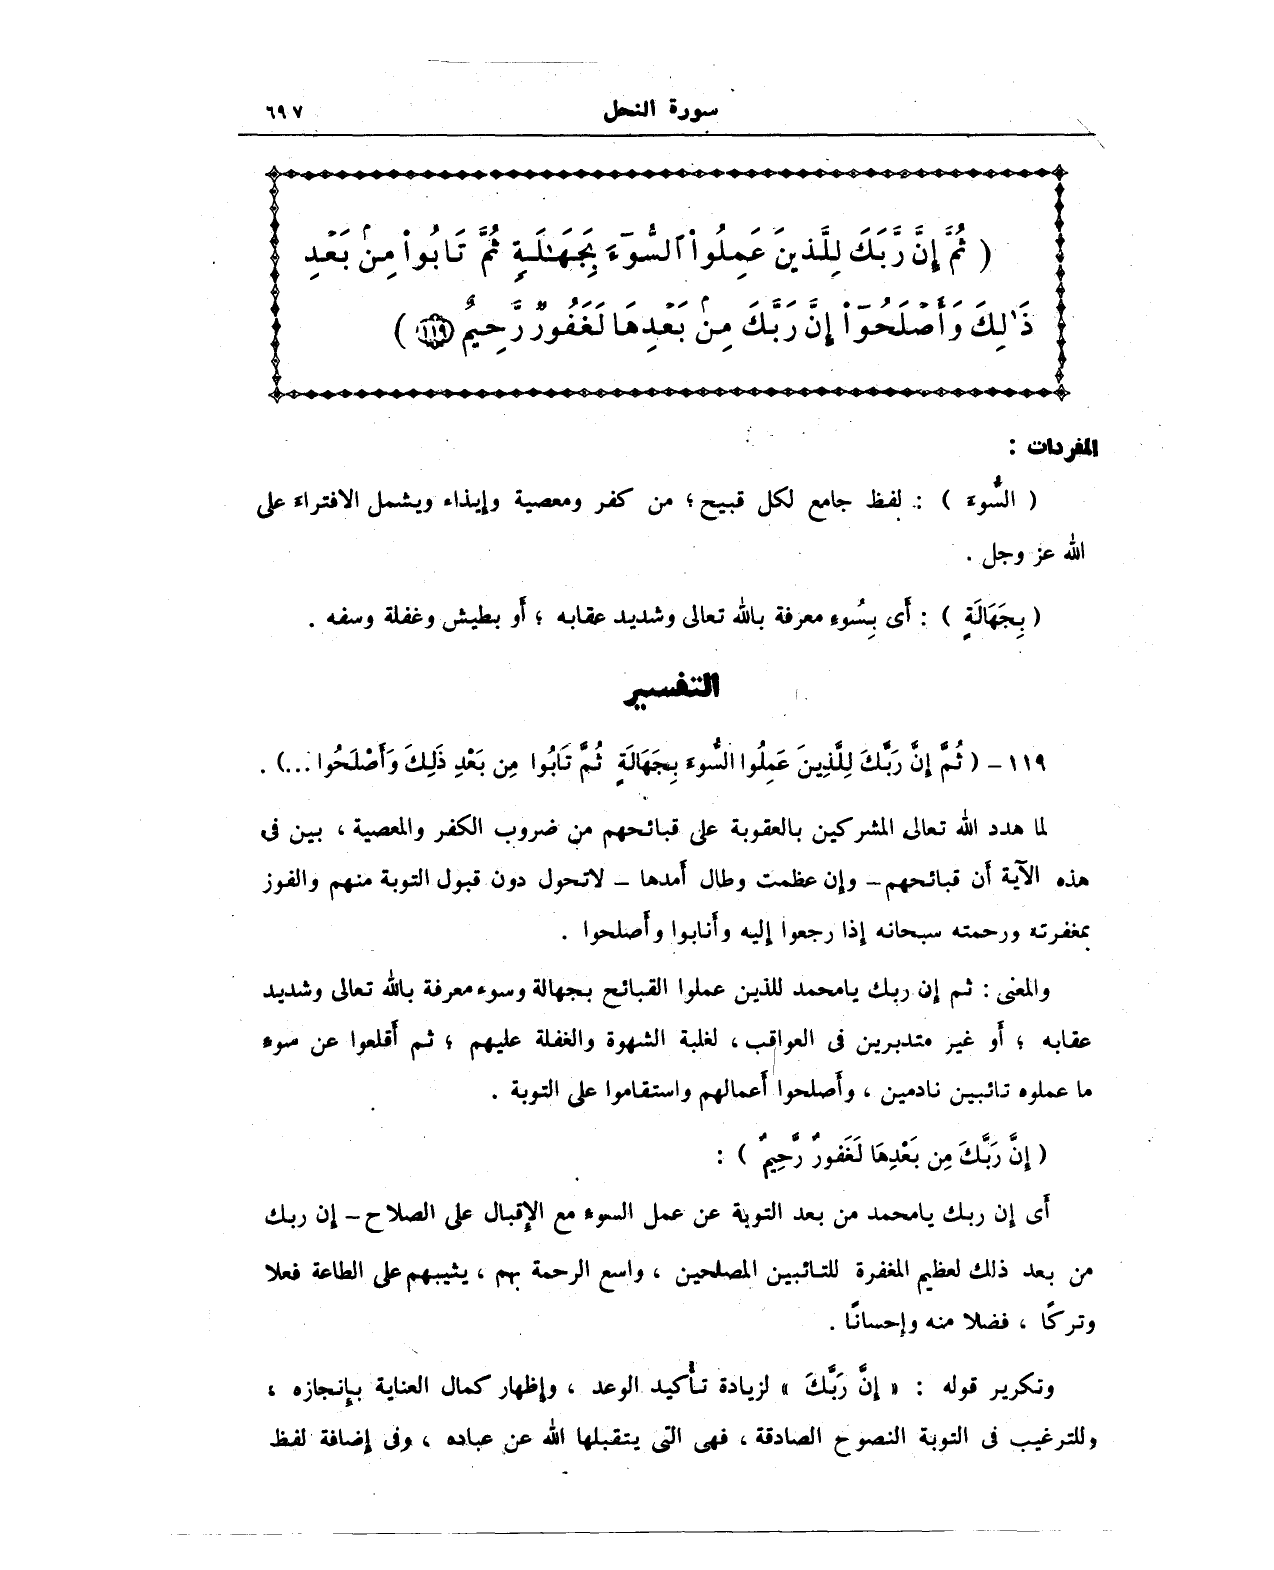 سورة النحل ٦٩٧
( ثُمَّ إِنَّ رَبَّكَ لِلَّذِينَ عَمِلُوا۟ ٱلسُّوٓءَ بِجَهَـٰلَةٍ ثُمَّ تَابُوا۟ مِنۢ بَعْدِ
ذَٰلِكَ وَأَصْلَحُوٓا۟ إِنَّ رَبَّكَ مِنۢ بَعْدِهَا لَغَفُورٌ رَّحِيمٌ ﴿١١٩﴾ )
المفردات :
( السُّوءَ ) : لفظ جامع لكل قبيح ؛ من كفر ومعصية وإيذاء ويشمل الافتراءَ على
الله عز وجل .
( بِجَهَالَةٍ ) : أَى بِسُوءِ معرفة بالله تعالى وشديد عقابه ؛ أَو بطيش وغفلة وسفه .
التفسير
١١٩ – ( ثُمَّ إِنَّ رَبَّكَ لِلَّذِينَ عَمِلُوا السُّوءَ بِجَهَالَةٍ ثُمَّ تَابُوا مِن بَعْدِ ذَلِكَ وَأَصْلَحُوا ...) .
لما هدد الله تعالى المشركين بالعقوبة على قبائحهم من ضروب الكفر والمعصية ، بين فى
هذه الآية أن قبائحهم – وإن عظمت وطال أَمدها – لاتحول دون قبول التوبة منهم والفوز
بمغفرته ورحمته سبحانه إذا رجعوا إليه وأَنابوا وأَصلحوا .
والمعنى : ثم إن ربك يامحمد للذين عملوا القبائح بجهالة وسوء معرفة بالله تعالى وشديد
عقابه ؛ أَو غير متدبرين فى العواقب ، لغلبة الشهوة والغفلة عليهم ؛ ثم أَقلعوا عن سوء
ما عملوه تائبين نادمين ، وأَصلحوا أَعمالهم واستقاموا على التوبة .
( إِنَّ رَبَّكَ مِن بَعْدِهَا لَغَفُورٌ رَّحِيمٌ ) :
أَى إن ربك يامحمد من بعد التوبة عن عمل السوء مع الإقبال على الصلاح – إن ربك
من بعد ذلك لعظيم المغفرة للتائبين المصلحين ، واسع الرحمة بهم ، يثيبهم على الطاعة فعلا
وتركًا ، فضلا منه وإحسانًا .
وتكرير قوله : « إِنَّ رَبَّكَ » لزيادة تأْكيد الوعد ، وإظهار كمال العناية بإنجازه ،
وللترغيب فى التوبة النصوح الصادقة ، فهى التى يتقبلها الله عن عباده ، وفى إضافة لفظ